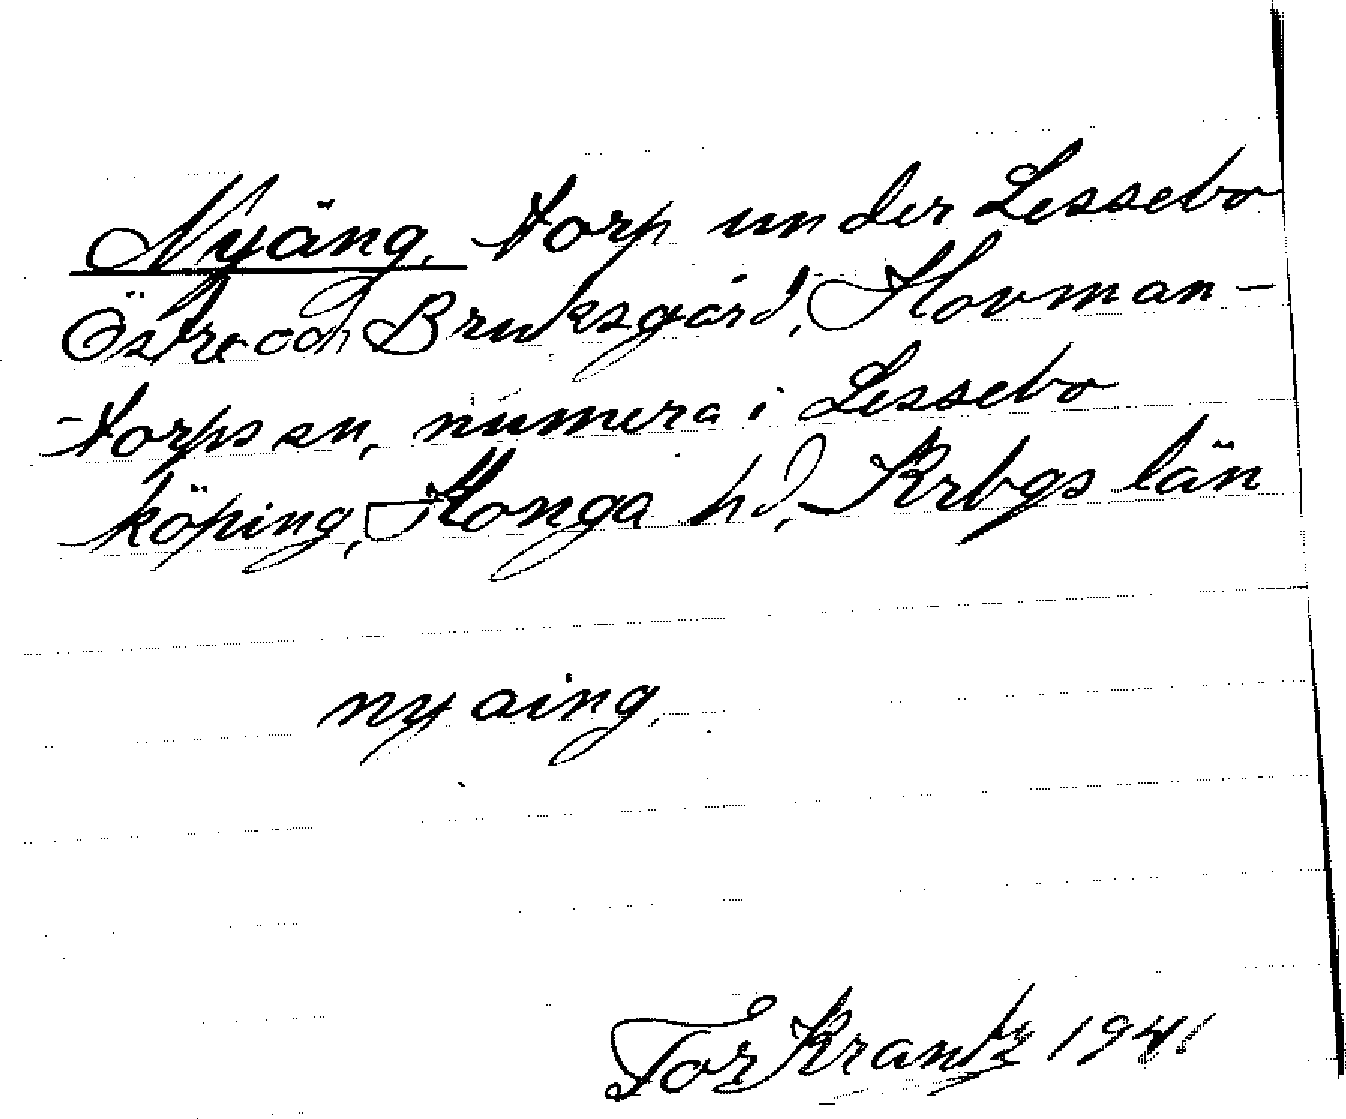 Nyäng, torp under Lessebo
Östre och Bruksgård, Hovman-
torps sn, numera i Lessebo
köping, Konga hd, Krbgs län
ny aing,
Tor Krantz 1941